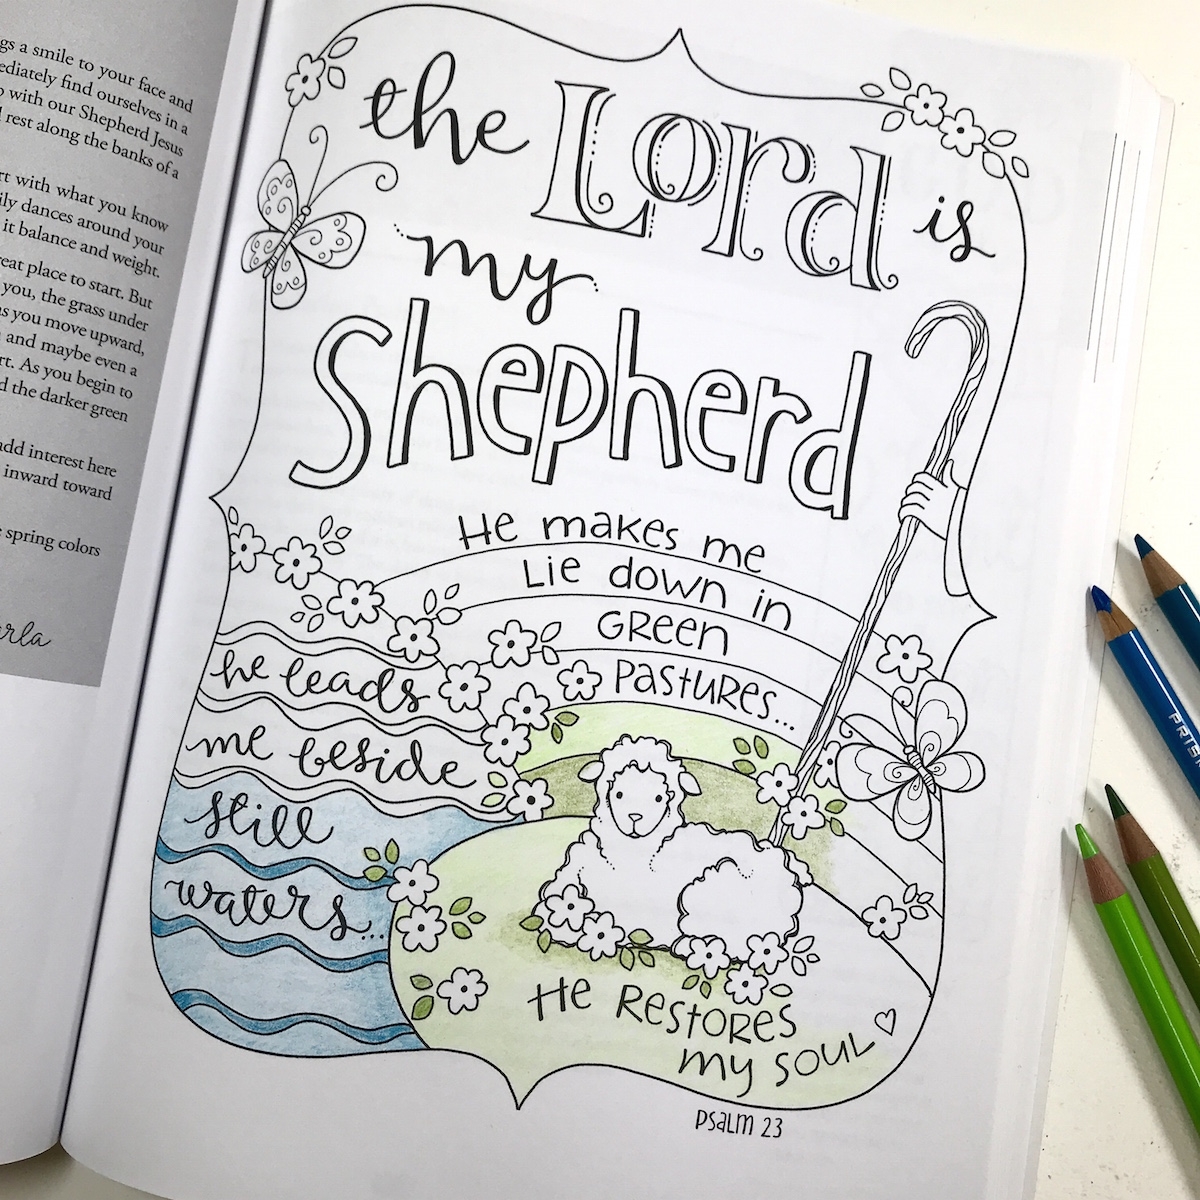 gs a smile to your face and
ediately find ourselves in a
with our Shepherd Jesus
rest along the banks of a
rt with what you know
ily dances around your
it balance and weight.
reat place to start. But
you, the grass under
as you move upward,
and maybe even a
rt. As you begin to
d the darker green
add interest here
inward toward
spring colors
arla
the Lord is
my
Shepherd
He makes me
Lie down in
GREEN
PASTURES...
he leads
me beside
still
waters...
He RESTORES
my SOUL
PSALM 23
PRISM